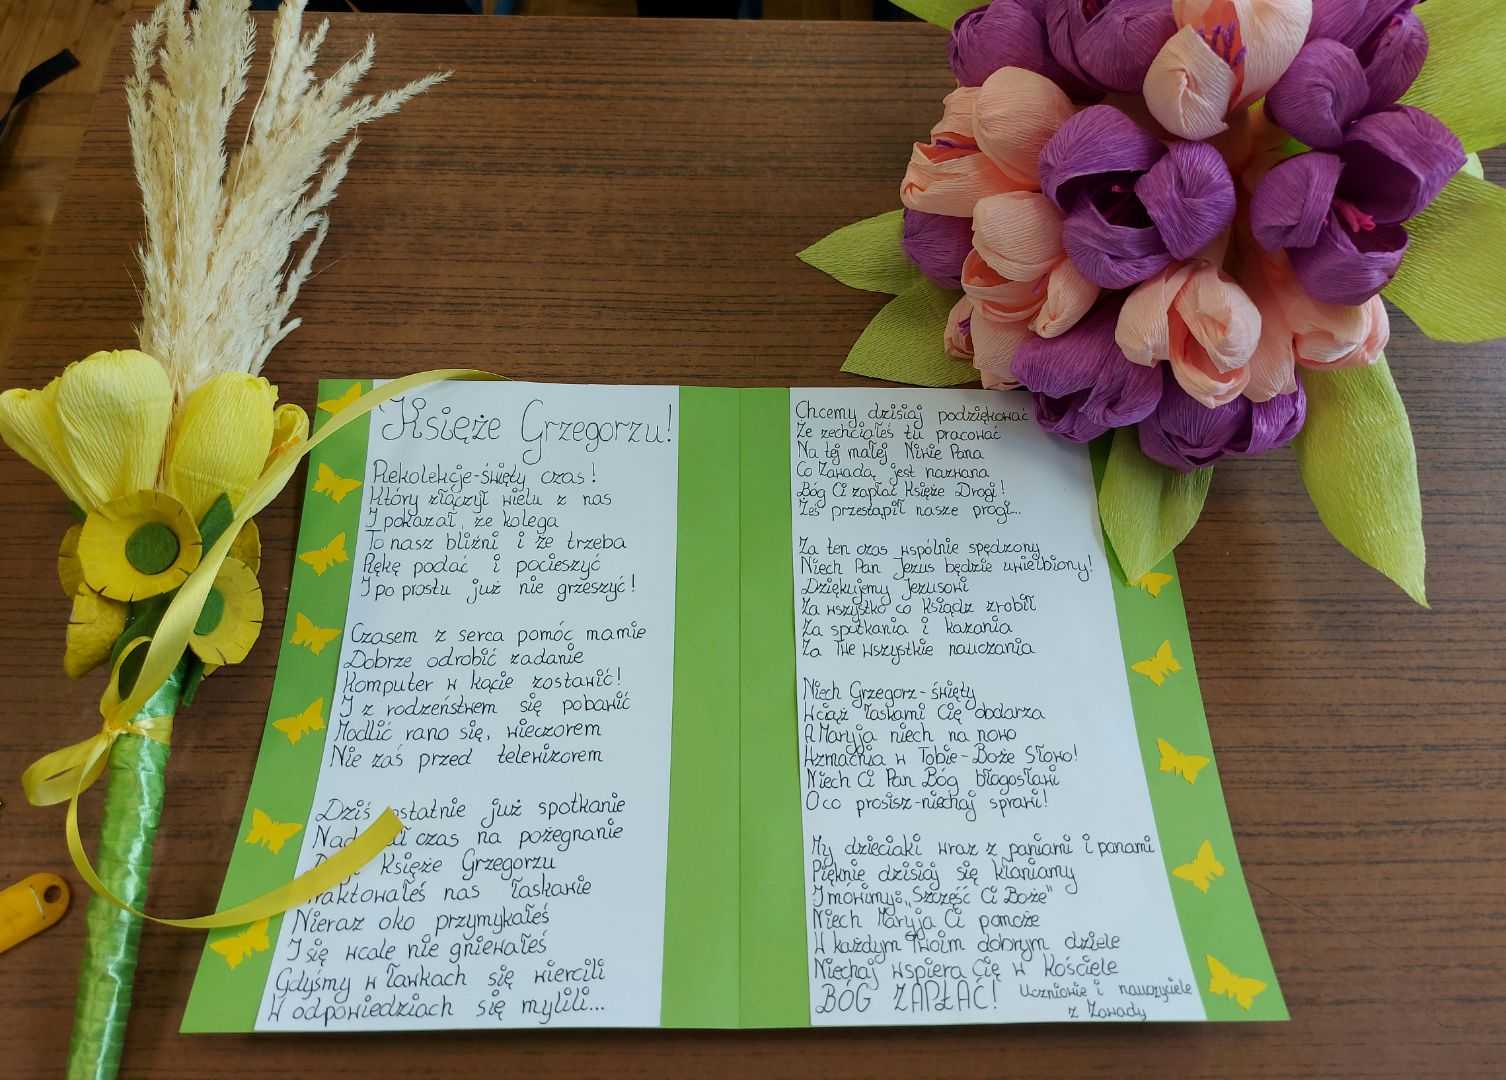 Księże Grzegorzu!
Rekolekcje-święty czas!
Który złączył wielu z nas
I pokazał, że kolega
To nasz bliźni i że trzeba
Rękę podać i pocieszyć
I po prostu już nie grzeszyć!
Czasem z serca pomóc mamie
Dobrze odrobić zadanie
Komputer w kącie zostawić!
I z rodzeństwem się pobawić
Modlić rano się, wieczorem
Nie zaś przed telewizorem
Dziś ostatnie już spotkanie
czas na pożegnanie
Księże Grzegorzu
nas łaskawie
Nieraz oko przymykałeś
I się wcale nie gniewałeś
Gdyśmy w ławkach się wiercili
W odpowiedziach się mylili...
Chcemy dzisiaj podziękować
Że zechciałeś tu pracować
Na tej małej Niwie Pana
Co Zawadą jest nazwana
Bóg Ci zapłać Księże Drogi!
Żeś przestąpił nasze progi...
Za ten czas wspólnie spędzony
Niech Pan Jezus będzie uwielbiony!
Dziękujemy Jezusowi
Za wszystko co Ksiądz zrobił
Za spotkania i kazania
Za Twe wszystkie nauczania
Niech Grzegorz-święty
Wciąż łaskami Cię obdarza
A Maryja niech na nowo
Wzmacnia w Tobie-Boże Słowo!
Niech Ci Pan Bóg błogosławi
O co prosisz-niechaj sprawi!
My dzieciaki wraz z paniami i panami
Pięknie dzisiaj się kłaniamy
I mówimy: „Szczęść Ci Boże"
Niech Maryja Ci pomoże
W każdym Twoim dobrym dziele
Niechaj wspiera Cię w Kościele
BÓG ZAPŁAĆ! Uczniowie i nauczyciele
z Zawady